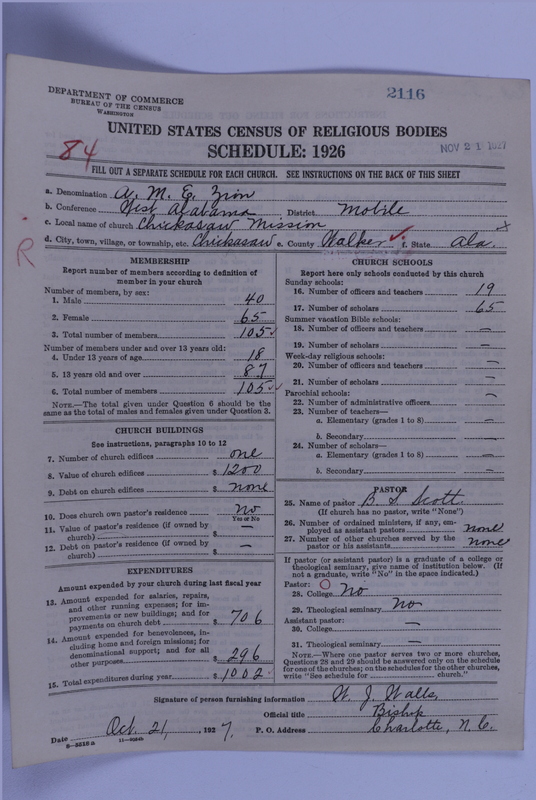 2116
DEPARTMENT OF COMMERCE
BUREAU OF THE CENSUS
WASHINGTON
UNITED STATES CENSUS OF RELIGIOUS BODIES
SCHEDULE: 1926
NOV 21 1927
84
FILL OUT A SEPARATE SCHEDULE FOR EACH CHURCH. SEE INSTRUCTIONS ON THE BACK OF THIS SHEET
a. Denomination A. M. E. Zion
b. Conference West Alabama District Mobile
c. Local name of church Chickasaw Mission x
d. City, town, village, or township, etc. Chickasaw e. County Walker ✓ f. State Ala.
R
MEMBERSHIP
Report number of members according to definition of
member in your church
Number of members, by sex:
1. Male 40
2. Female 65
3. Total number of members 105 ✓
Number of members under and over 13 years old:
4. Under 13 years of age 18
5. 13 years old and over 87
6. Total number of members 105 ✓
NOTE.—The total given under Question 6 should be the
same as the total of males and females given under Question 3.
CHURCH BUILDINGS
See instructions, paragraphs 10 to 12
7. Number of church edifices one
8. Value of church edifices $ 1200
9. Debt on church edifices $ none
10. Does church own pastor's residence No
Yes or No
11. Value of pastor's residence (if owned by
church) $ —
12. Debt on pastor's residence (if owned by
church) $ —
EXPENDITURES
Amount expended by your church during last fiscal year
13. Amount expended for salaries, repairs,
and other running expenses; for im-
provements or new buildings; and for
payments on church debt $ 706
14. Amount expended for benevolences, in-
cluding home and foreign missions; for
denominational support; and for all
other purposes $ 296
15. Total expenditures during year $ 1002
CHURCH SCHOOLS
Report here only schools conducted by this church
Sunday schools:
16. Number of officers and teachers 19
17. Number of scholars 65
Summer vacation Bible schools:
18. Number of officers and teachers —
19. Number of scholars —
Week-day religious schools:
20. Number of officers and teachers —
21. Number of scholars —
Parochial schools:
22. Number of administrative officers —
23. Number of teachers—
a. Elementary (grades 1 to 8) —
b. Secondary —
24. Number of scholars—
a. Elementary (grades 1 to 8) —
b. Secondary —
PASTOR
25. Name of pastor B. S. Scott
(If church has no pastor, write "None")
26. Number of ordained ministers, if any, em-
ployed as assistant pastors none
27. Number of other churches served by the
pastor or his assistants none
If pastor (or assistant pastor) is a graduate of a college or
theological seminary, give name of institution below. (If
not a graduate, write "No" in the space indicated.)
Pastor:
28. College No
29. Theological seminary No
Assistant pastor:
30. College —
31. Theological seminary —
NOTE.—Where one pastor serves two or more churches,
Questions 28 and 29 should be answered only on the schedule
for one of the churches; on the schedules for the other churches,
write "See schedule for church."
Signature of person furnishing information W. J. Walls,
Official title Bishop
Date Oct. 21, 1927. P. O. Address Charlotte, N. C.